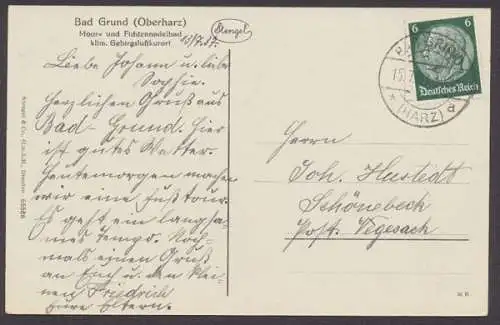 Bad Grund (Oberharz)
Moor- und Fichtennadelbad
klim. Gebirgsluftkurort
Stengel
13/7.37.
Liebe Johann u. liebe
Sophie.
Herzlichen Gruß aus
Bad-Grund. Hier
ist gutes Wetter.
Heutemorgen machen
wir eine Fußtour.
Es geht ein langsa-
mes Tempo. Noch-
mals einen Gruß
an Euch u. den klei-
nen Friedrich
Eure Eltern.
Stengel & Co., G.m.b.H., Dresden 65586
6 6
Deutsches Reich
BAD GRUND
15.7.
* (HARZ) a
Herrn
Joh. Hustedt
Schönebeck
Post. Vegesack